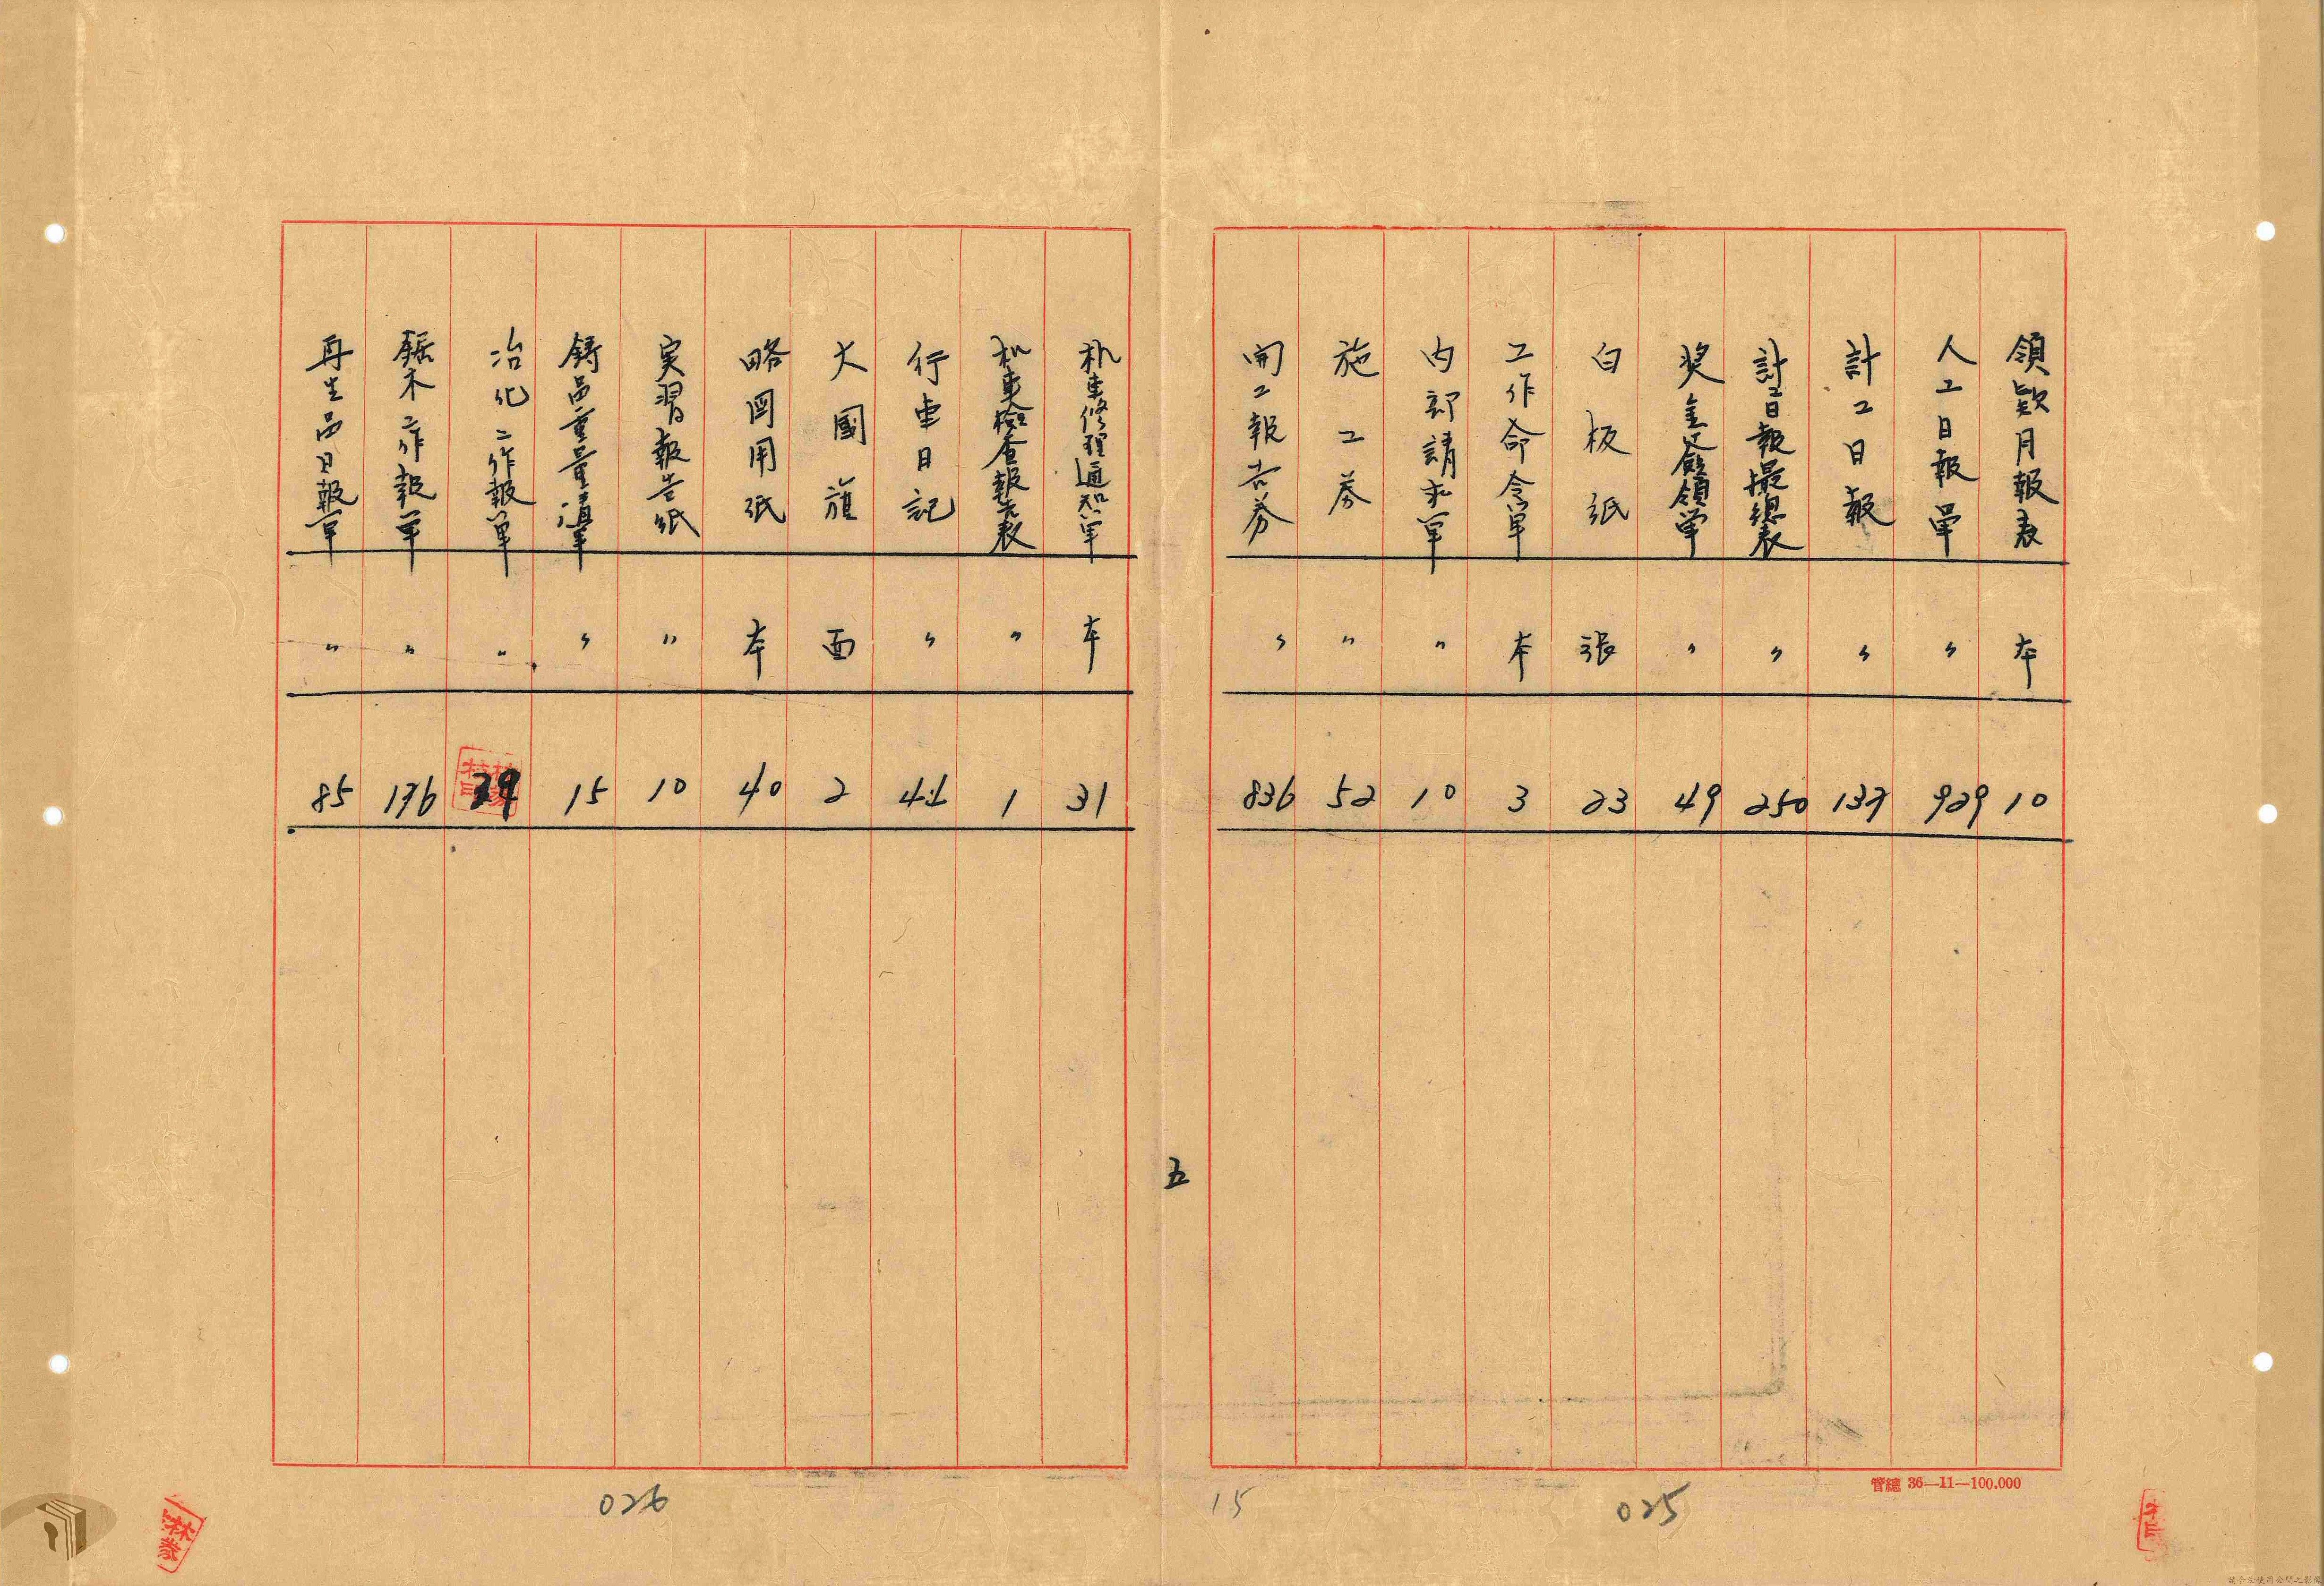 領款月報表 本 10
人工日報單 〃 929
計工日報 〃 137
計工日報撮總表 〃 250
奖金簽領單 〃 49
白板紙 張 23
工作命令單 本 3
内部請求單 〃 10
施工券 〃 52
開工報告券 〃 836
机車修理通知單 本 31
机車檢查報告表 〃 1
行車日記 〃 44
大國旗 面 2
略図用紙 本 40
実習報告紙 〃 10
鋳品重量清單 〃 15
冶化工作報單 〃 39
鋸木工作報單 〃 176
再生品日報單 〃 85
五
管總 36—11—100.000
025
15
026